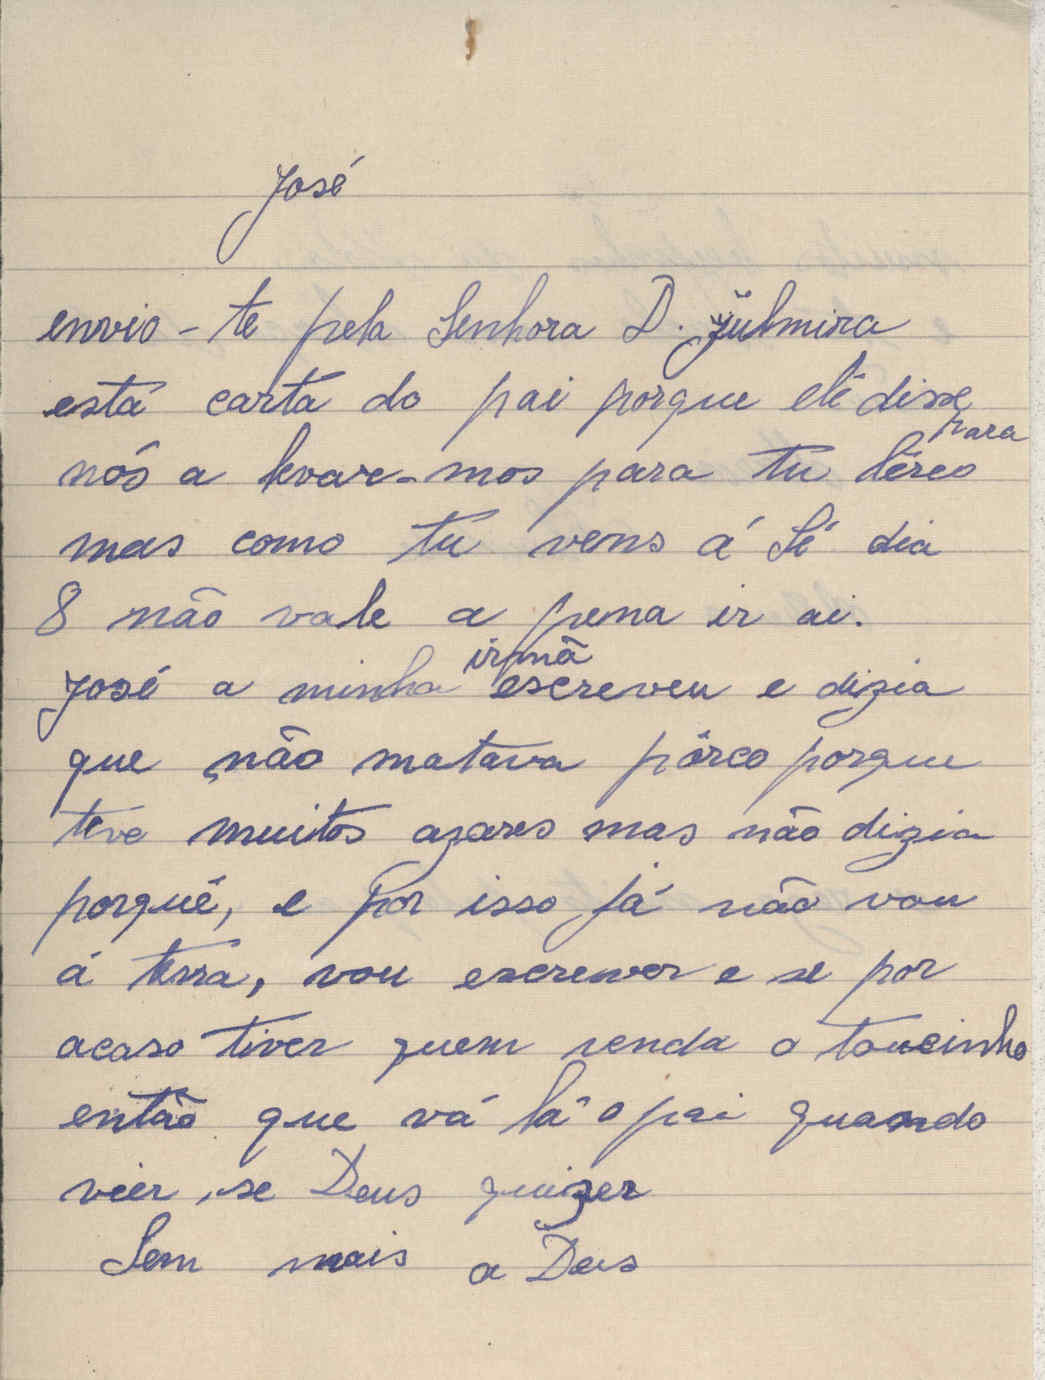 José
envio-te pela Senhora D. Julmira
está carta do pai porque ele disse para
nós a levar-mos para tu lêres
mas como tu vens á Sé dia
8 não vale a pena ir ai.
José a minha irmã escreveu e dizia
que não matava pôrco porque
teve muitos azares mas não dizia
porquê, e por isso já não vou
á terra, vou escrever e se por
acaso tiver quem venda o toucinho
então que vá lá o pai quando
vier, se Deus quizer
Sem mais a Deus